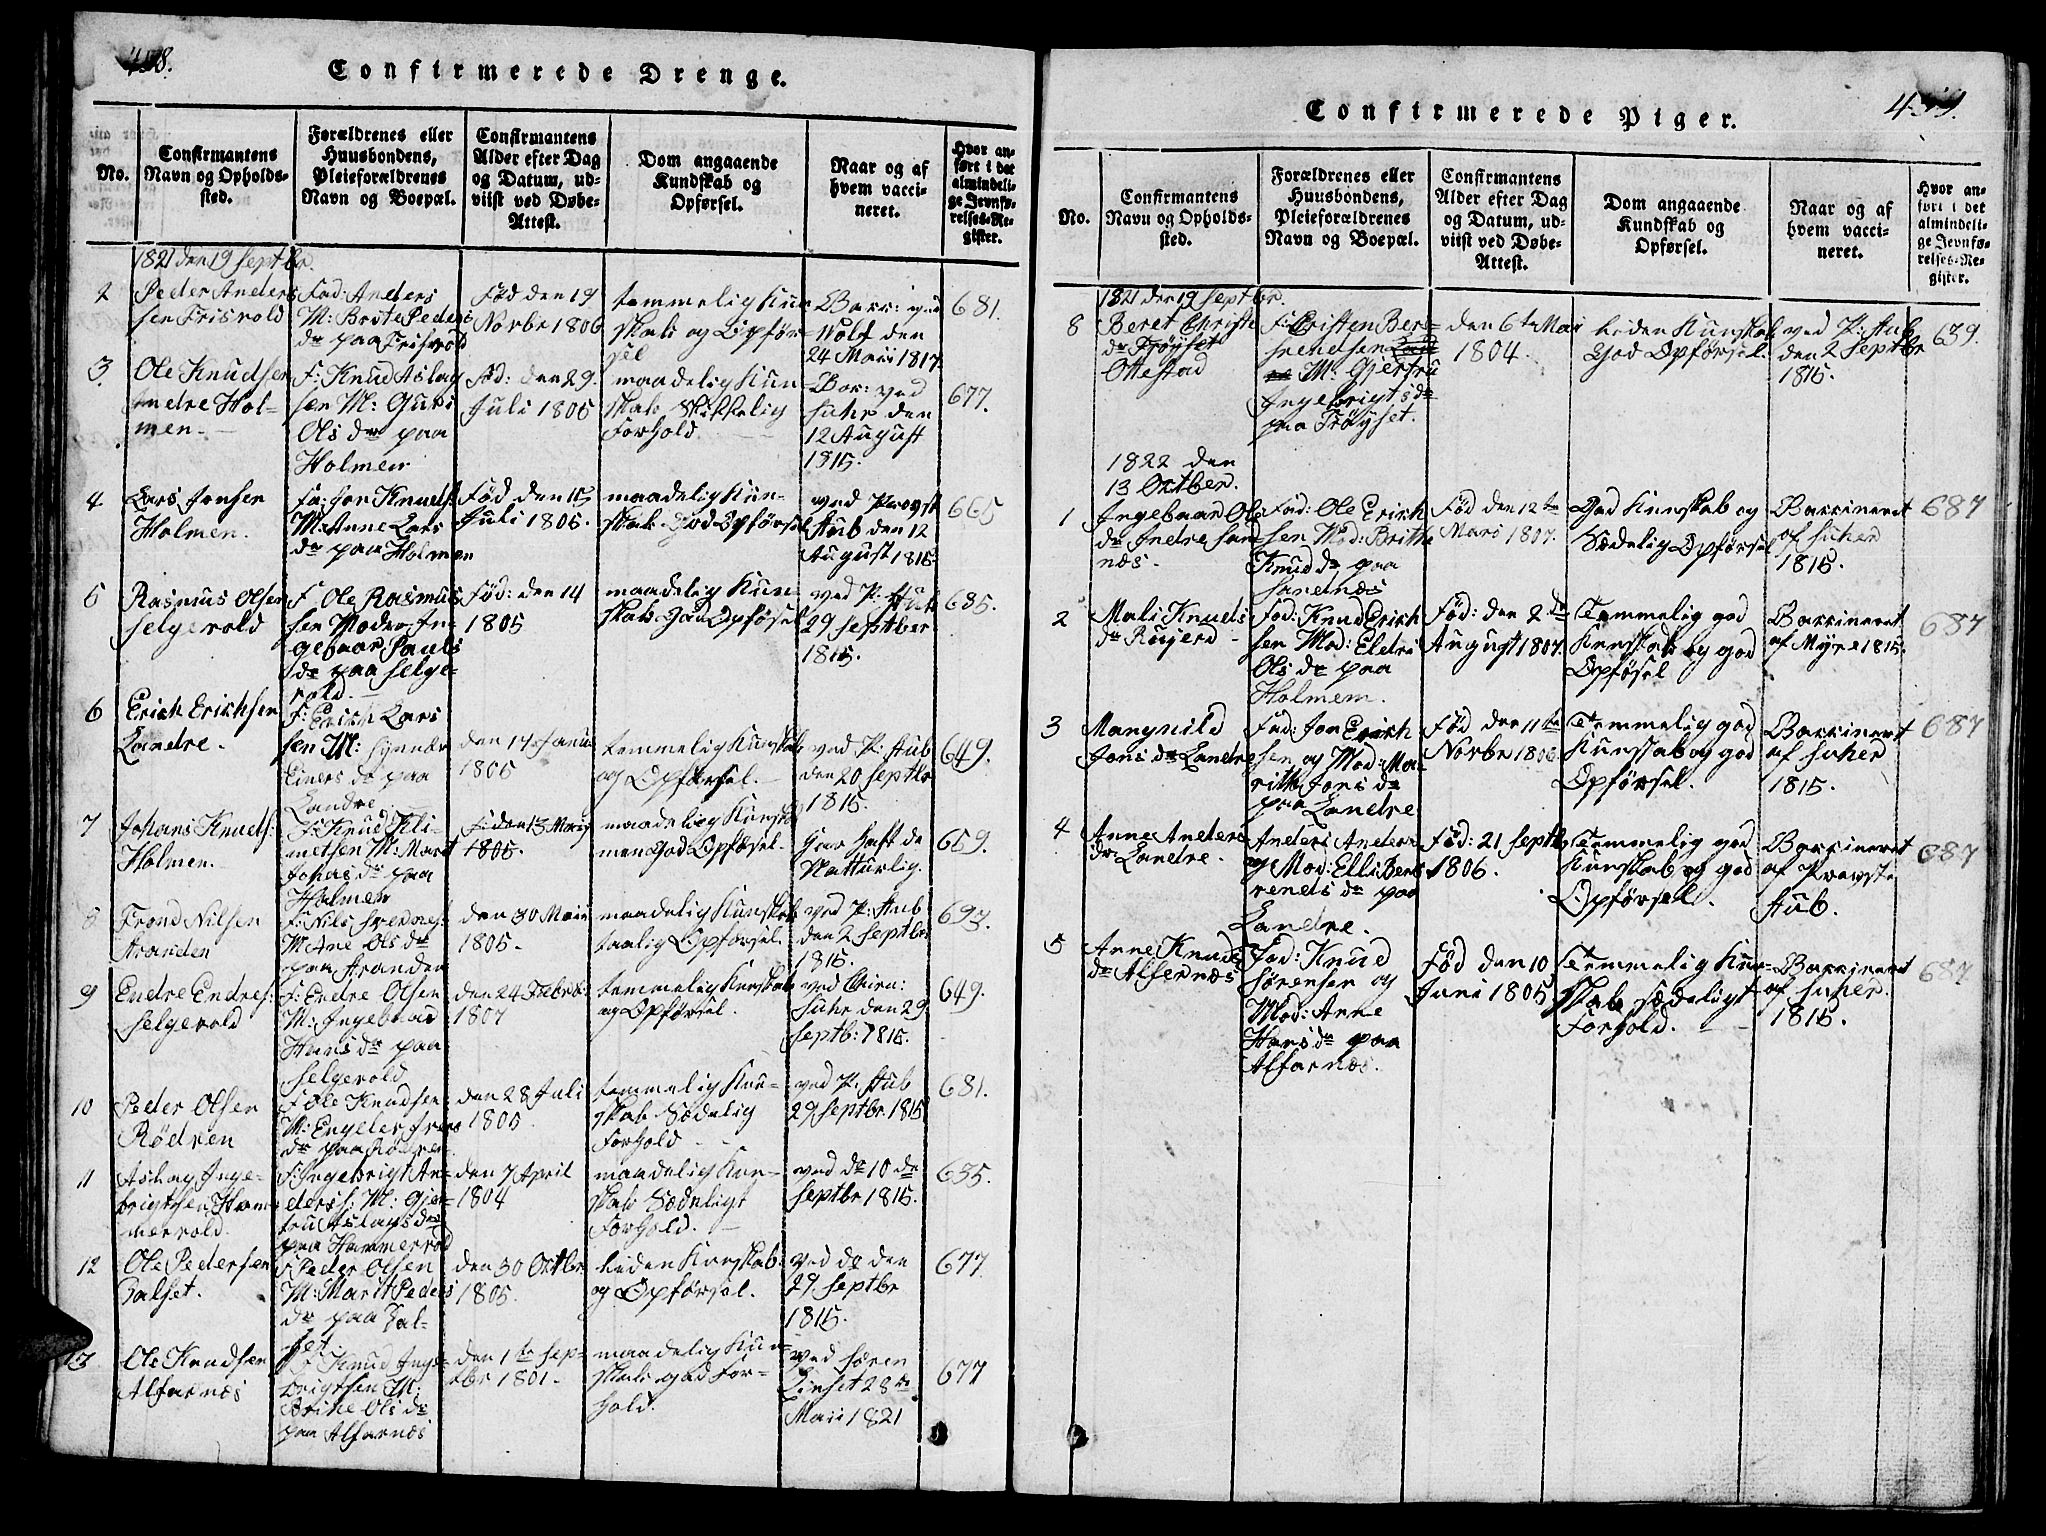 458.
Confirmerede Drenge.
No.
Confirmantens
Navn og Opholds-
sted.
Forældrenes eller
Huusbondens,
Pleieforældrenes
Navn og Boepæl.
Confirmantens
Alder efter Dag
og Datum, ud-
viist ved Døbe-
Attest.
Dom angaaende
Kundskab og
Opførsel.
Naar og af
hvem vacci-
neret.
Hvor an-
ført i det
almindeli-
ge Jevnfø-
relses-Re-
gister.
1821 den 19 Septbr.
2
Peder Anders
sen Frisvold
Fad: Anders
M: Brite Peders
dr paa Frisvold
Fød den 19
Novbr 1806
temmelig Kun
skab og Opfør
sel
Vacc: ved
Wolf den
24 Maii 1817.
681.
3.
Ole Knudsen
indre Hol-
men.
F: Knud Aslag
sen M: Guri
Ols dr paa
Holmen
Fød: den 29.
Juli 1805
maadelig Kun
skab Skikkelig
Forhold.
Vac: ved
Suhr den
12 August
1815.
677.
4
Lars Jonsen
Holmen.
Fa: Jon Knuds:
M: Anne Lars
dr paa Holmen
Fød den 15
Juli 1806.
maadelig Kun-
skab God Opførsel
ved Provst
Stub den 12
August 1815
665
5
Rasmus Olsen
Selgevold
F Ole Rasmus
sen Moder In-
gebaar Pauls
dr paa Selge-
vold.
Fød: den 14
1805
maadelig Kun
skab God Opførsel
ved P: Stub
29 Septber
1815.
685.
6
Erich Erichsen
Landre.
F: Erich Lars
sen M: Synnev
Einers dr paa
Landre
den 17 Janu
1805
temmelig Kunskab
og Opførsel.
ved P: Stub
den 20 Septbr
1815.
649.
7
Johans Knuds:
Holmen.
F: Knud Kli-
metsen M: Marit
Jonas dr paa
Holmen
F: den 13 Marts
1805.
maadelig Kunska
men God Opførsel.
har haft de
Natturlig.
659.
8
Trond Nilsen
Stranden
F: Nils Svends:
M: Ane Ols dr
paa Stranden
den 30 Maii
1805.
maadelig Kunskab
taalig Opførsel.
ved P: Stub
den 2 Septbr
1815.
693.
9
Endre Endres:
Selgevold
F: Endre Olsen
M: Ingebaar
Hans dr paa
Selgevold
den 24 Febrb:
1807
temmelig Kunskab
og Opførsel.
ved Chiru:
Suhr den 29
Septb: 1815.
649.
10
Peder Olsen
Rödven
F Ole Knudsen
M: Engeler Ivers
dr paa Rödven
den 28 Juli
1805.
temmelig Kun-
skab Sædelig
Forhold
ved P: Stub
29 Septbr 1815
681.
11
Aslag Inge-
brigtsen Ham-
mervold.
F: Ingebrigt An-
derss: M: Gjer-
tru Aslags dr
paa Hammervold
den 7 April
1804
maadelig Kun-
skab Sædeligt
Forhold.
ved do 10 de
Septbr 1815.
635.
12
Ole Pedersen
Dalset.
F Peder Olsen
M: Marit Peders
dr paa Dal-
set
den 30 Octbr
1805.
leden Kunskab:
og Opførsel.
ved do den
29 Septbr
1815.
677
13
Ole Knudsen
Alfarnæs
F Knud Inge-
brigtsen M:
Brithe Ols dr
paa Alfarnæs
den 1te Sep-
tbr 1801.
maadelig Kun-
skab god For-
hold.
ved Søren
Linset 28 de
Maii 1821
677
459.
Confirmerede Piger.
No.
Confirmantens
Navn og Opholds-
sted.
Forældrenes eller
Huusbondens,
Pleieforældrenes
Navn og Boepæl.
Confirmantens
Alder efter Dag
og Datum, ud-
viist ved Døbe-
Attest.
Dom angaaende
Kundskab og
Opførsel.
Naar og af
hvem vacci-
neret.
Hvor an-
ført i det
almindeli-
ge Jevnfø-
relses-Re-
gister.
1821 den 19 Septbr.
8
Beret Christe
dr Tröyset
Ottestad
F: Cristen Ber-
rendsen
M: Gjertru
Ingebrigts dr
paa Tröyset.
den 6te Mai
1804.
leden Kunskab
God Opförsel.
ved P: Stub
den 2 Septbr
1815.
639.
1822 den
13 Octber.
1
Ingebaar Ols
dr Indre Sand-
næs.
Fad: Ole Erich
sen Mod: Brithe
Knud dr paa
Sandnæs
Fød den 12te
Mars 1807.
God Kunskab og
Sædelig Opførsel
Vaccineret
af Suher
1815.
687
2
Mali Knuds
dr Röjerd
Fad: Knud Erich
sen Mod: Eldri
Ols dr paa
Holmem.
Fød: den 2 de
August 1807.
Temmelig god
Kunskab og god
Opförsel
Vaccineret
af Myre 1815.
687
3
Mangnild
Jons dr Landre
Fad: Jon Erich
sen og Mod: Ma-
rith Jons dr
paa Landre
Fød den 11te
Novbr 1806
Temmelig god
Kunskab og god
Opførsel.
Vaccineret
af Suher
1815.
687
4
Anne Anders
dr Landre.
Anders Anders
og Mod: Elli Berr
rends dr paa
Landre.
Fød: 21 Septb
1806.
Temmelig god
Kunskab og god
Opførsel.
Vaccineret
af Provste
Stub.
687
5
Anne Knuds
dr Alfernæs
Fad: Knud
Sørensen og
Mod: Anne
Hans dr paa
Alfarnæs.
Fød den 10
Juni 1805
Temmelig Kun-
skab Sædeligt
Forhold.
Vaccineret
af Suher.
1815.
687